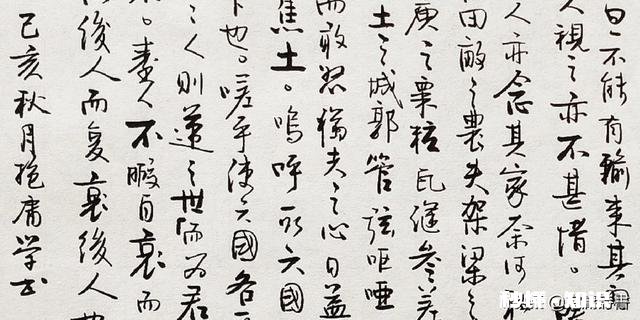 旦不能有輸來其間
人視之亦不甚惜。
人亦念其家奈何
田畝之農夫架梁之
庾之粟粒瓦縫參差
土之城郭管弦呕啞
而敢怒獨夫之心日益
焦土。嗚呼六國
下也。嗟乎使六國各
之人則遞之世而為君
。秦人不暇自哀而
後人而复哀後人
己亥秋月抱庸学书